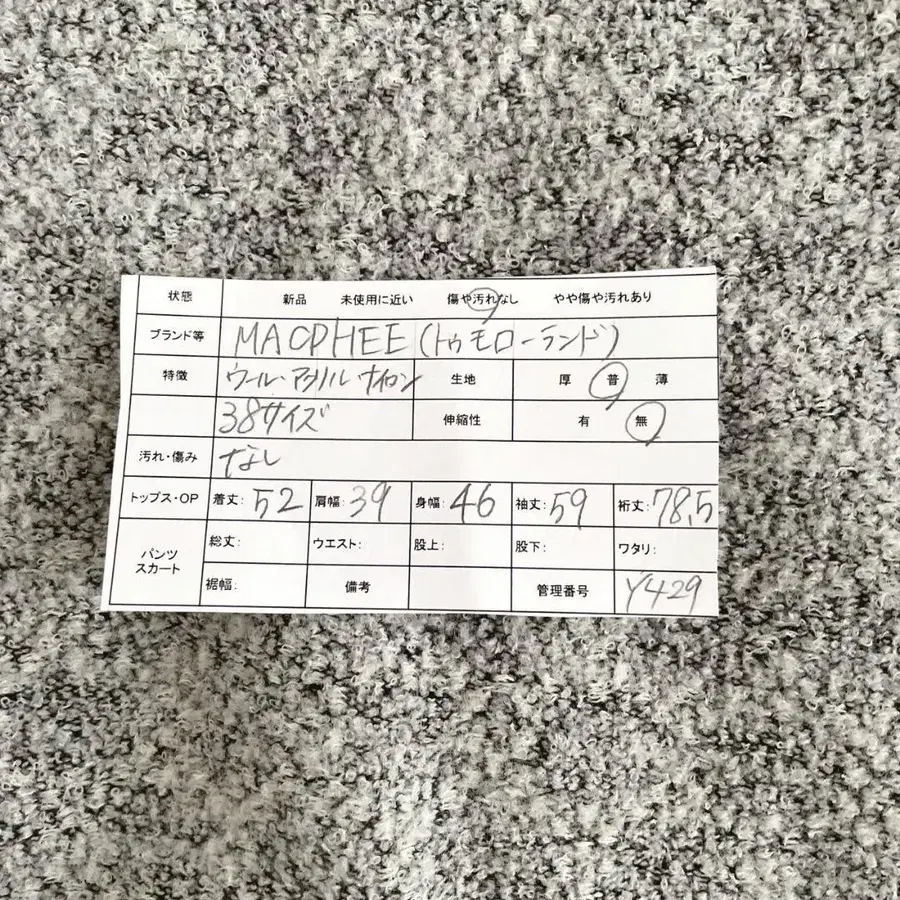 状態 新品 未使用に近い 傷や汚れなし やや傷や汚れあり
ブランド等 MACPHEE(トゥモローランド)
特徴 ウール・アクリル ナイロン 生地 厚 普 薄
38サイズ 伸縮性 有 無
汚れ・傷み なし
トップス・OP 着丈:52 肩幅:39 身幅:46 袖丈:59 裄丈:78.5
パンツ スカート 総丈: ウエスト: 股上: 股下: ワタリ:
裾幅: 備考 管理番号 Y429